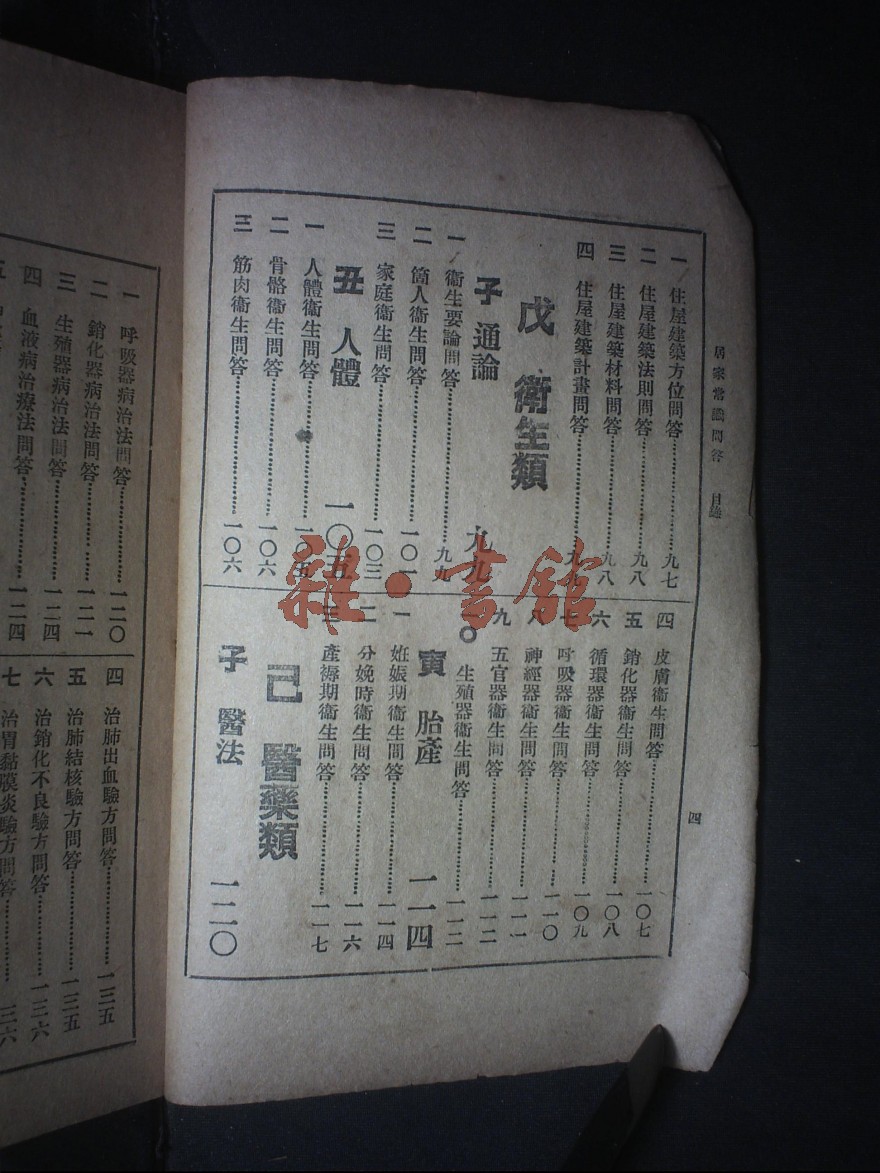 居家常識問答 目錄
四
一 住屋建築方位問答 九七
二 住屋建築法則問答 九八
三 住屋建築材料問答 九八
四 住屋建築計畫問答
戊 衛生類
子 通論 九九
一 衛生要論問答 九九
二 箇人衛生問答 一〇一
三 家庭衛生問答 一〇三
丑 人體 一〇五
一 人體衛生問答 一〇五
二 骨骼衛生問答 一〇六
三 筋肉衛生問答 一〇六
四 皮膚衛生問答 一〇七
五 銷化器衛生問答 一〇八
六 循環器衛生問答 一〇九
七 呼吸器衛生問答 一一〇
八 神經器衛生問答 一一一
九 五官器衛生問答 一一二
一〇 生殖器衛生問答 一一二
寅 胎產 一一四
一 姙娠期衛生問答 一一四
二 分娩時衛生問答 一一六
三 產褥期衛生問答 一一七
己 醫藥類
子 醫法 一二〇
一 呼吸器病治法問答 一二〇
二 銷化器病治法問答 一二一
三 生殖器病治法問答 一二四
四 血液病治療法問答 一二四
五
四 治肺出血驗方問答 一三五
五 治肺結核驗方問答 一三五
六 治銷化不良驗方問答 一三六
七 治胃黏膜炎驗方問答 一三六
雜·書館